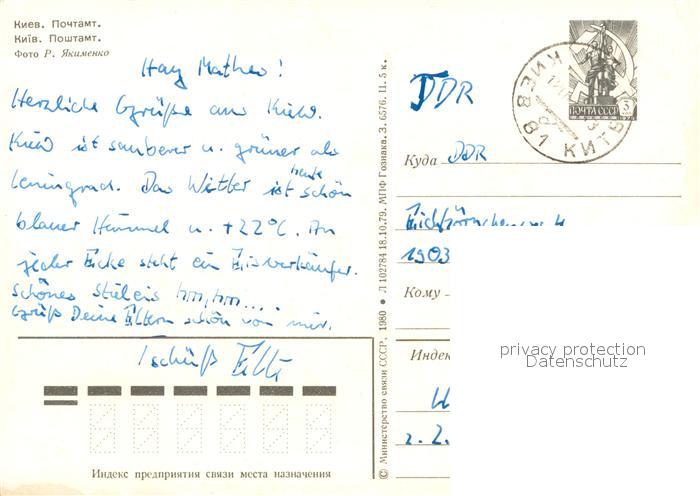 Киев. Почтамт.
Київ. Поштамт.
Фото Р. Якименко
Hay Matheo!
Herzliche Grüße aus Kiew.
Kiew ist sauberer u. grüner als
Leningrad. Das Wetter ist heute schön
blauer Himmel u. +22°C. An
jeder Ecke steht ein Eisverkäufer.
schönes Stileis hm, hm....
Grüß Deine Eltern schön von mir.
Tschüß
Индекс предприятия связи места назначения
© Министерство связи СССР, 1980 • Л 102784 18.10.79. МПФ Гознака. З. 6576. Ц. 5 к.
DDR
ПОЧТА СССР
3
КИЕВ 81 КИЇВ
Куда DDR
1903
Кому
Индек
z. Z.
privacy protection
Datenschutz